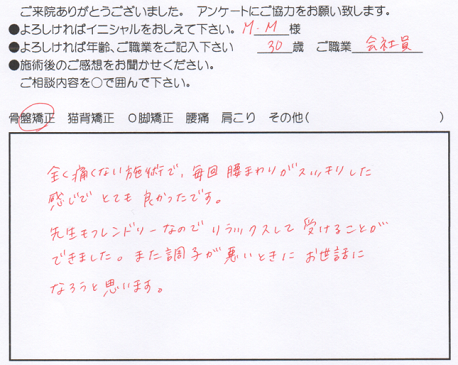 ご来院ありがとうございました。 アンケートにご協力をお願い致します。
●よろしければイニシャルをおしえて下さい。 M.M 様
●よろしければ年齢、ご職業をご記入下さい 30 歳 ご職業 会社員
●施術後のご感想をお聞かせください。
ご相談内容を○で囲んで下さい。
骨盤矯正 猫背矯正 O脚矯正 腰痛 肩こり その他( )
全く痛くない施術で、毎回 腰まわりがスッキリした
感じで とても 良かったです。
先生もフレンドリーなので リラックスして 受けることが
できました。また調子が悪いときに お世話に
なろうと思います。